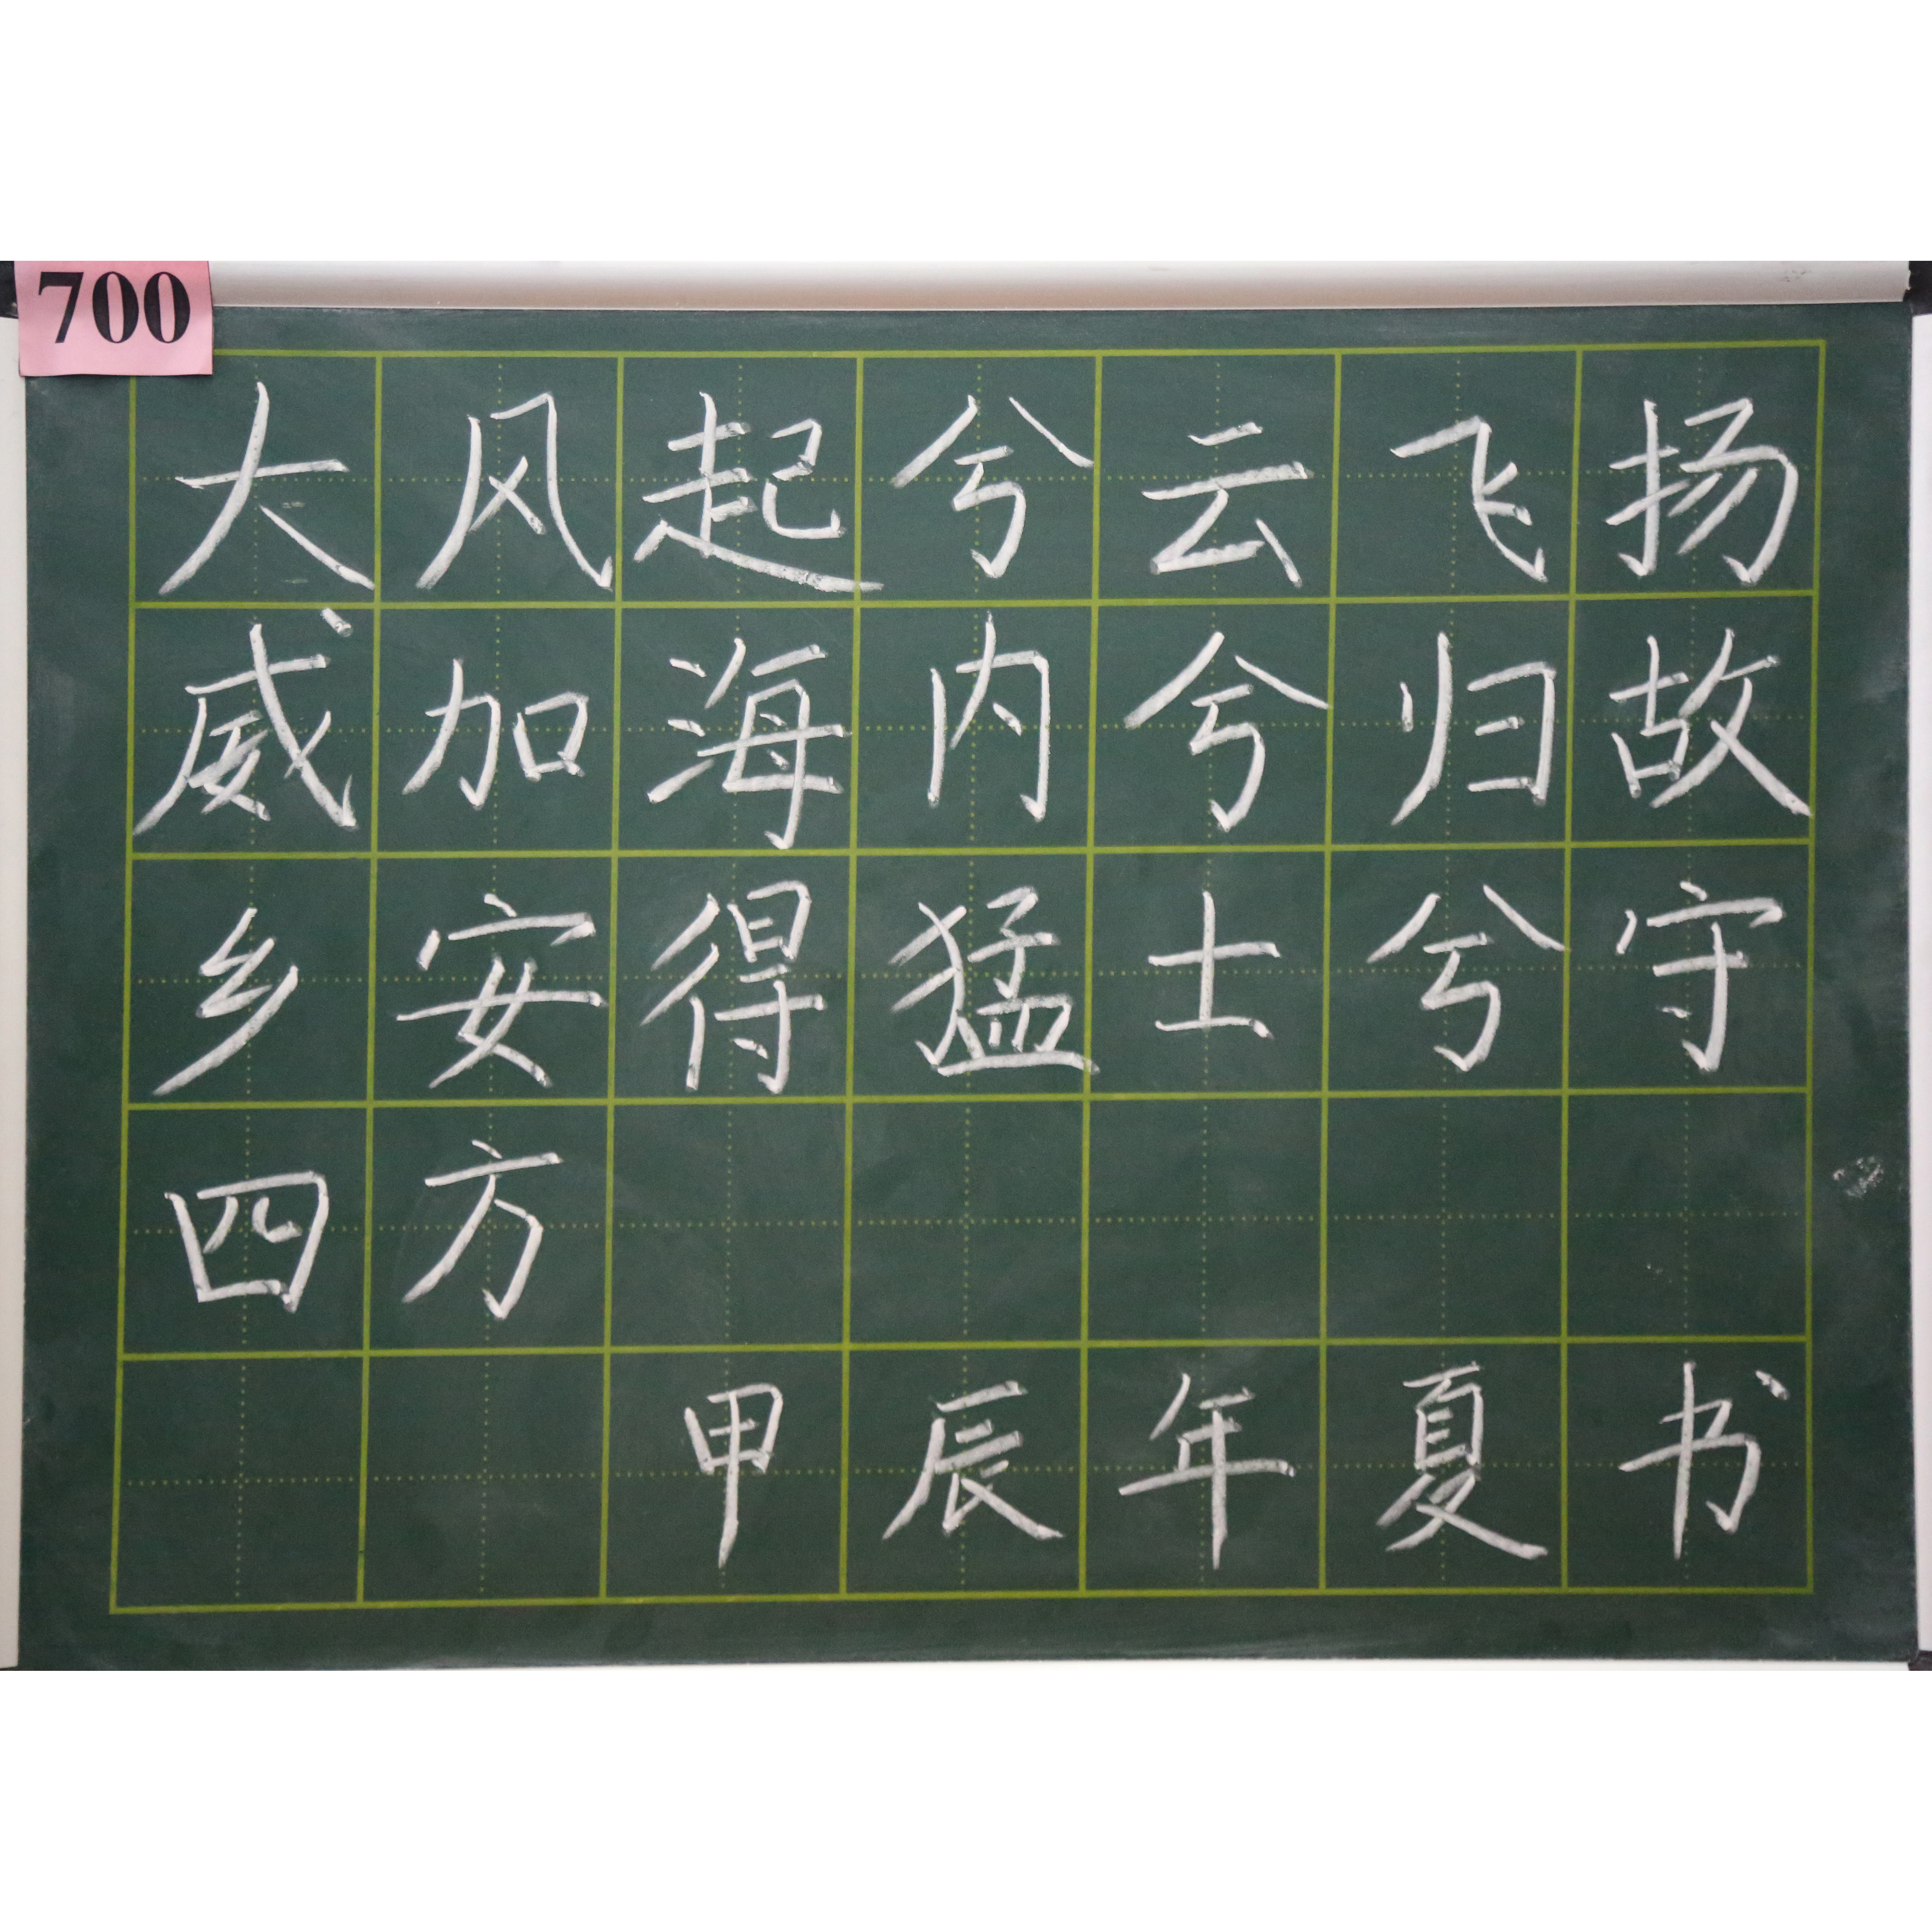 700
大风起兮云飞扬
威加海内兮归故
乡安得猛士兮守
四方
甲辰年夏书